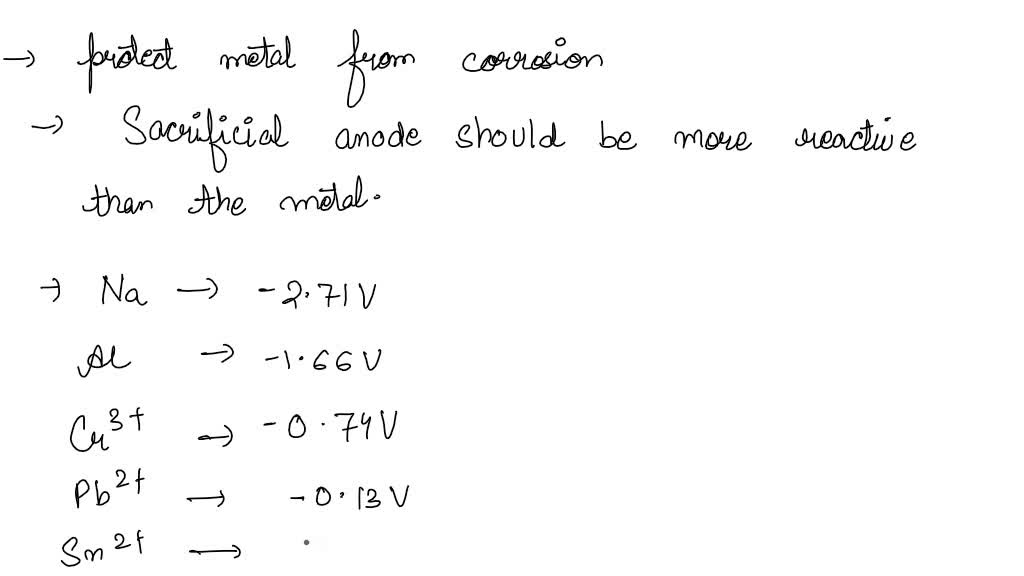 → protect metal from corrosion
→ Sacrificial anode should be more reactive
than the metal.
→ Na → -2.71V
Al → -1.66V
Cr3+ → -0.74V
Pb2+ → -0.13V
Sn2+ →